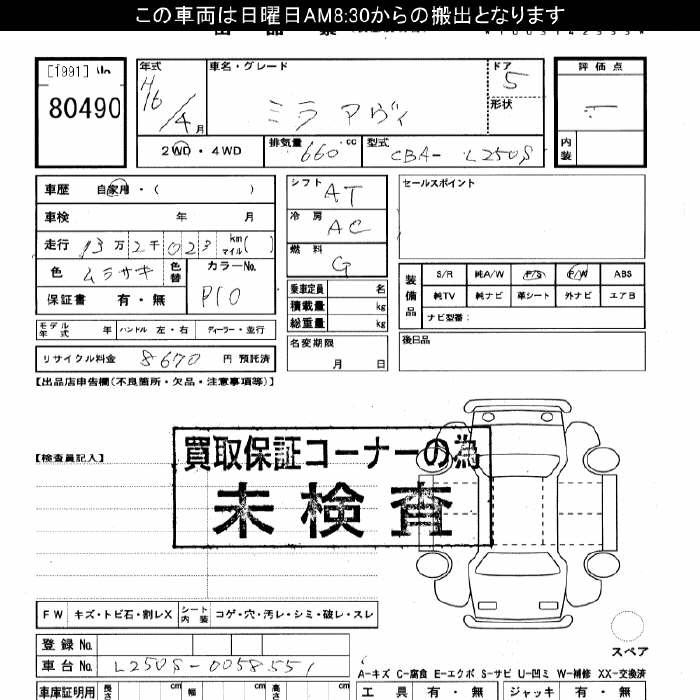 この車両は日曜日AM8:30からの搬出となります
[1991] No
80490
年式
H16/4月
車名・グレード
ミラ アヴィ
ドア
5
形状
評価点
内装
2WD・4WD
排気量 660 cc
型式 CBA- L250S
車歴 自家用・( )
車検 年 月
走行 13万2千023 km マイル( )
色 ムラサキ 色替
カラーNo. P10
保証書 有・無
シフト AT
冷房 AC
燃料 G
乗車定員 名
積載量 kg
総重量 kg
名変期限
月 日
セールスポイント
装備品
S/R 純A/W P/S P/W ABS
純TV 純ナビ 革シート 外ナビ エアB
ナビ型番:
後日品
モデル年式 年 ハンドル 左・右 ディーラー・並行
リサイクル料金 8670 円 預託済
【出品店申告欄(不良箇所・欠品・注意事項等)】
【検査員記入】
買取保証コーナーの為
未検査
FW キズ・トビ石・割レX シート内装 コゲ・穴・汚レ・シミ・破レ・スレ
スペア
登録No.
車台No. L250S-0058551
A-キズ C-腐食 E-エクボ S-サビ U-凹ミ W-補修 XX-交換済
車庫証明用 長さ cm 幅 cm 高さ cm
工具 有・無 ジャッキ 有・無